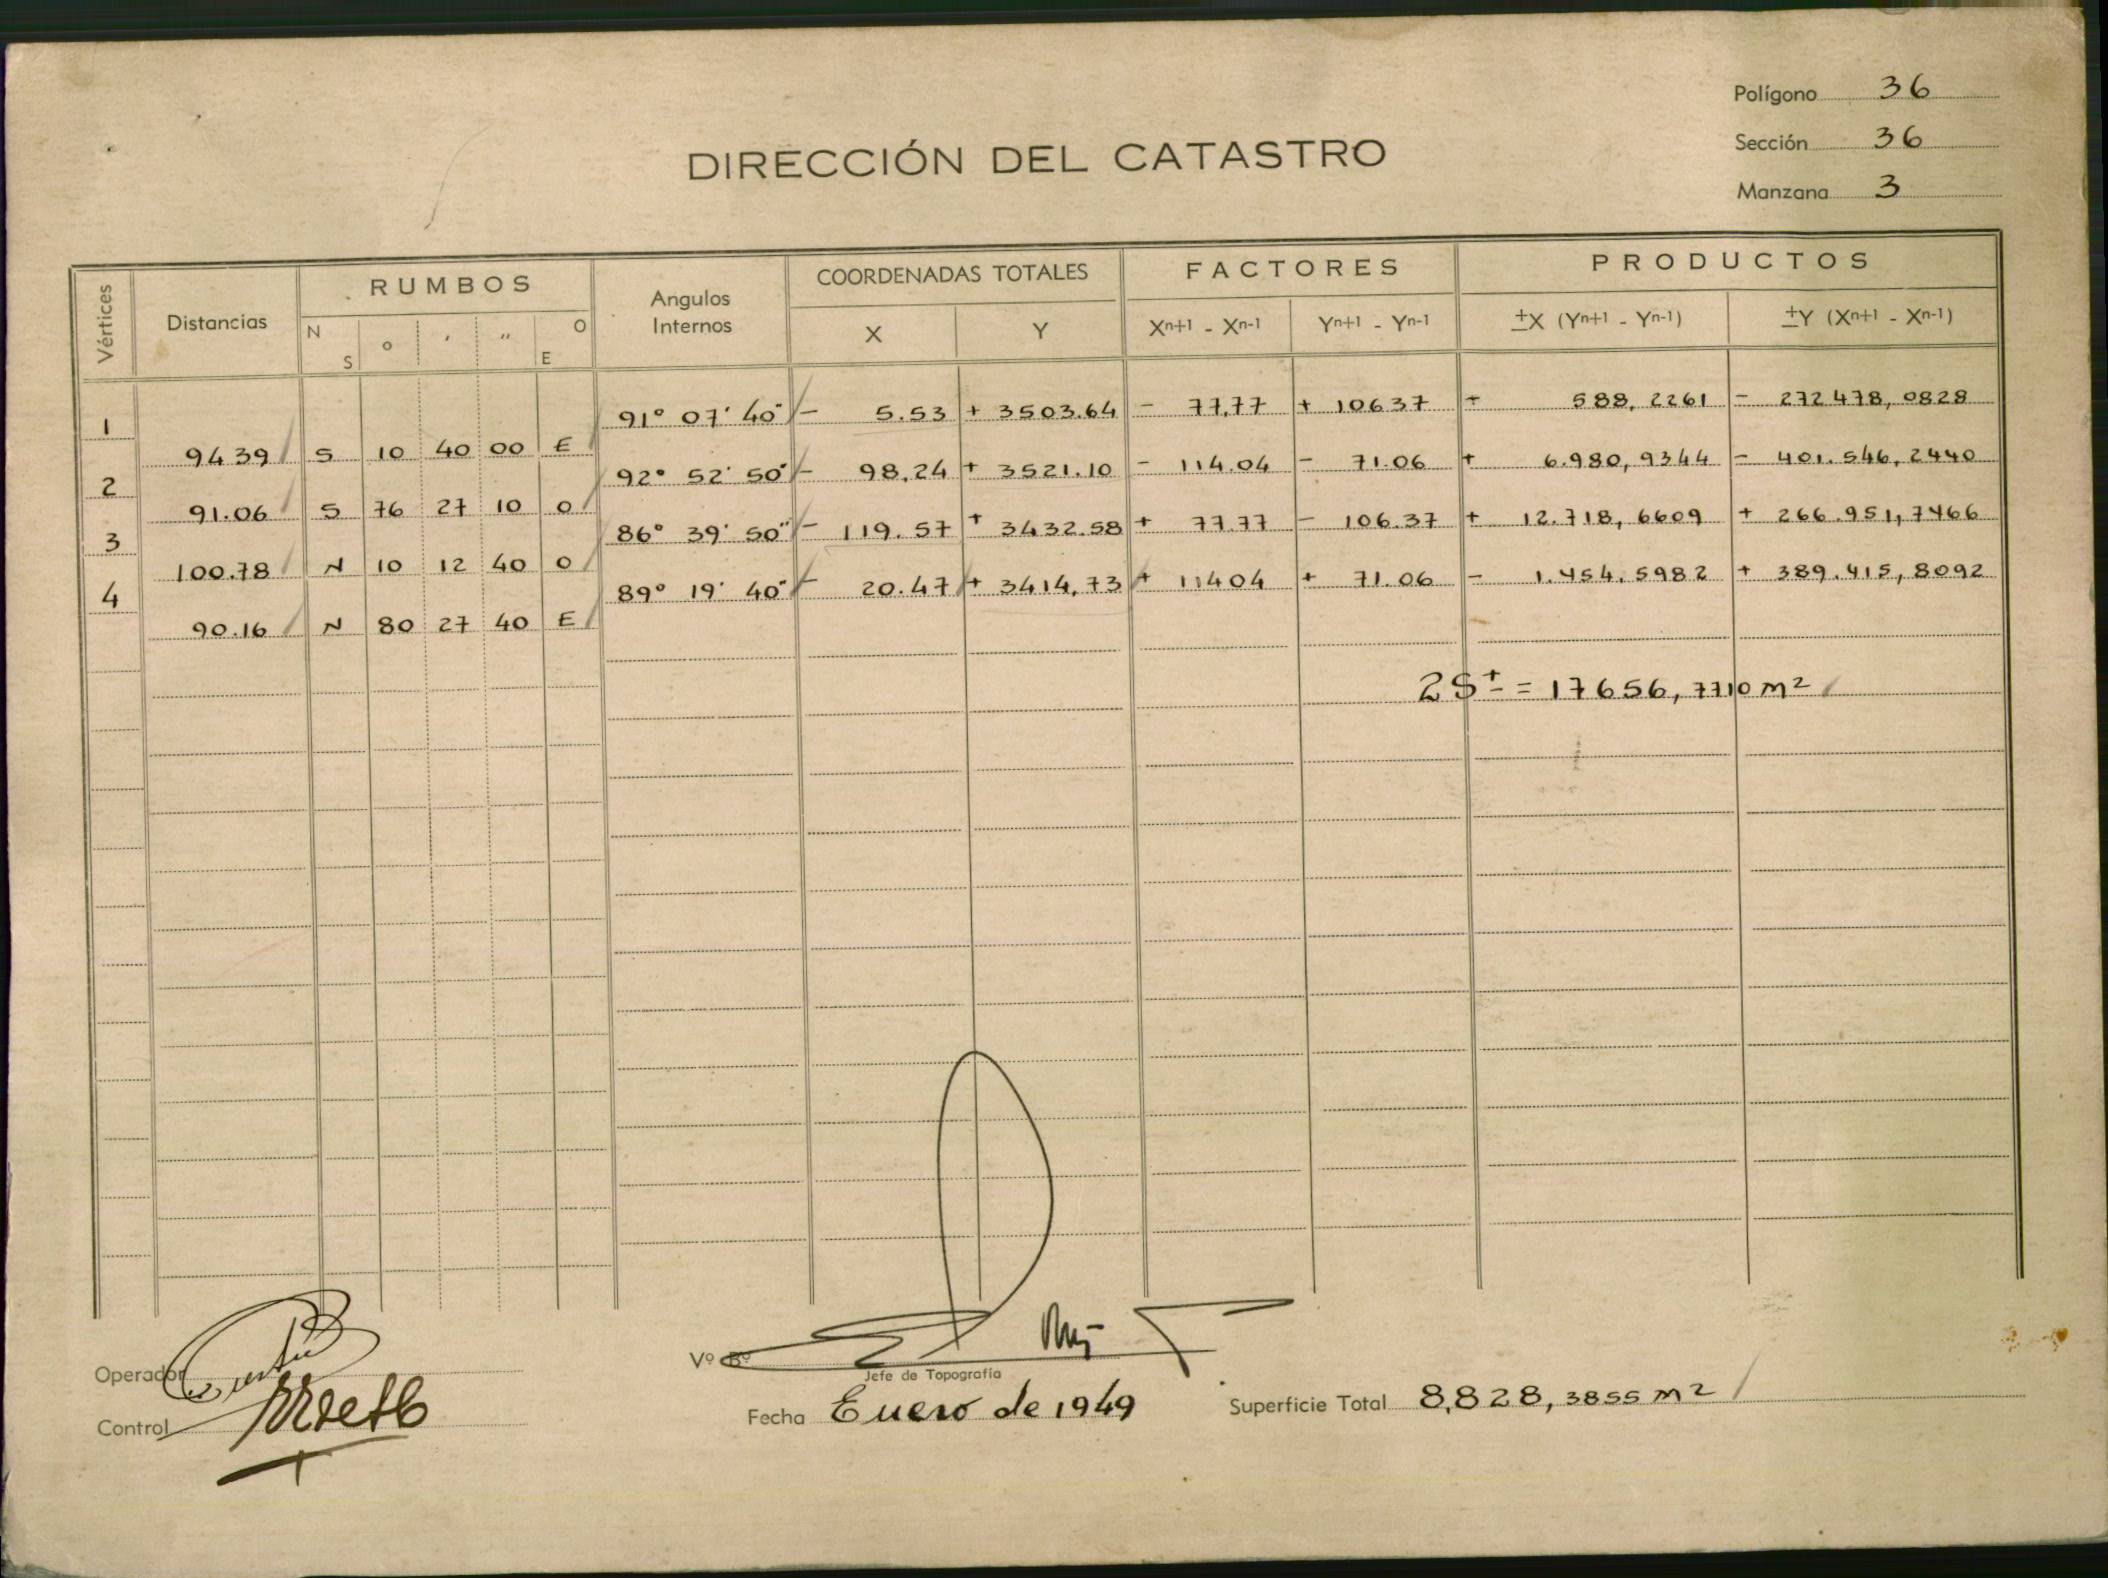 Polígono 36
Sección 36
Manzana 3
DIRECCIÓN DEL CATASTRO
Vértices Distancias RUMBOS Angulos Internos COORDENADAS TOTALES FACTORES PRODUCTOS
N S ° ' " O E X Y Xn+1 - Xn-1 Yn+1 - Yn-1 ±X (Yn+1 - Yn-1) ±Y (Xn+1 - Xn-1)
1 91° 07' 40" - 5.53 + 3503.64 - 77,77 + 10637 + 588,2261 - 272478,0828
9439 S 10 40 00 E
2 92° 52' 50" - 98,24 + 3521.10 - 114.04 - 71.06 + 6.980,9344 - 401.546,2440
91.06 S 76 27 10 O
3 86° 39' 50" - 119.57 + 3432.58 + 77.77 - 106.37 + 12.718,6609 + 266.951,7466
100.78 N 10 12 40 O
4 89° 19' 40" - 20.47 + 3414,73 + 11404 + 71.06 - 1.454.5982 + 389.415,8092
90.16 N 80 27 40 E
2S± = 17656,7710 m²
Operador
Control
Vº Bº
Jefe de Topografía
Fecha Enero de 1949
Superficie Total 8,828,3855 m²